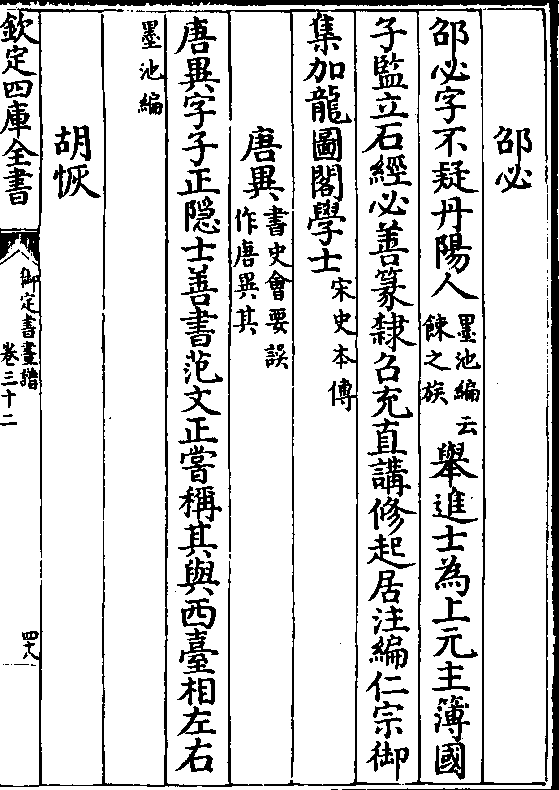 邵必
邵必字不疑丹陽人墨池編云餗之族舉進士為上元主簿國
子監立石經必善篆隸召充直講修起居注編仁宗御
集加龍圖閣學士宋史本傳
唐異書史會要誤作唐異其
唐異字子正隠士善書范文正嘗稱其與西臺相左右
墨池編
胡恢
欽定四庫全書
御定書畫譜
卷三十二
四八